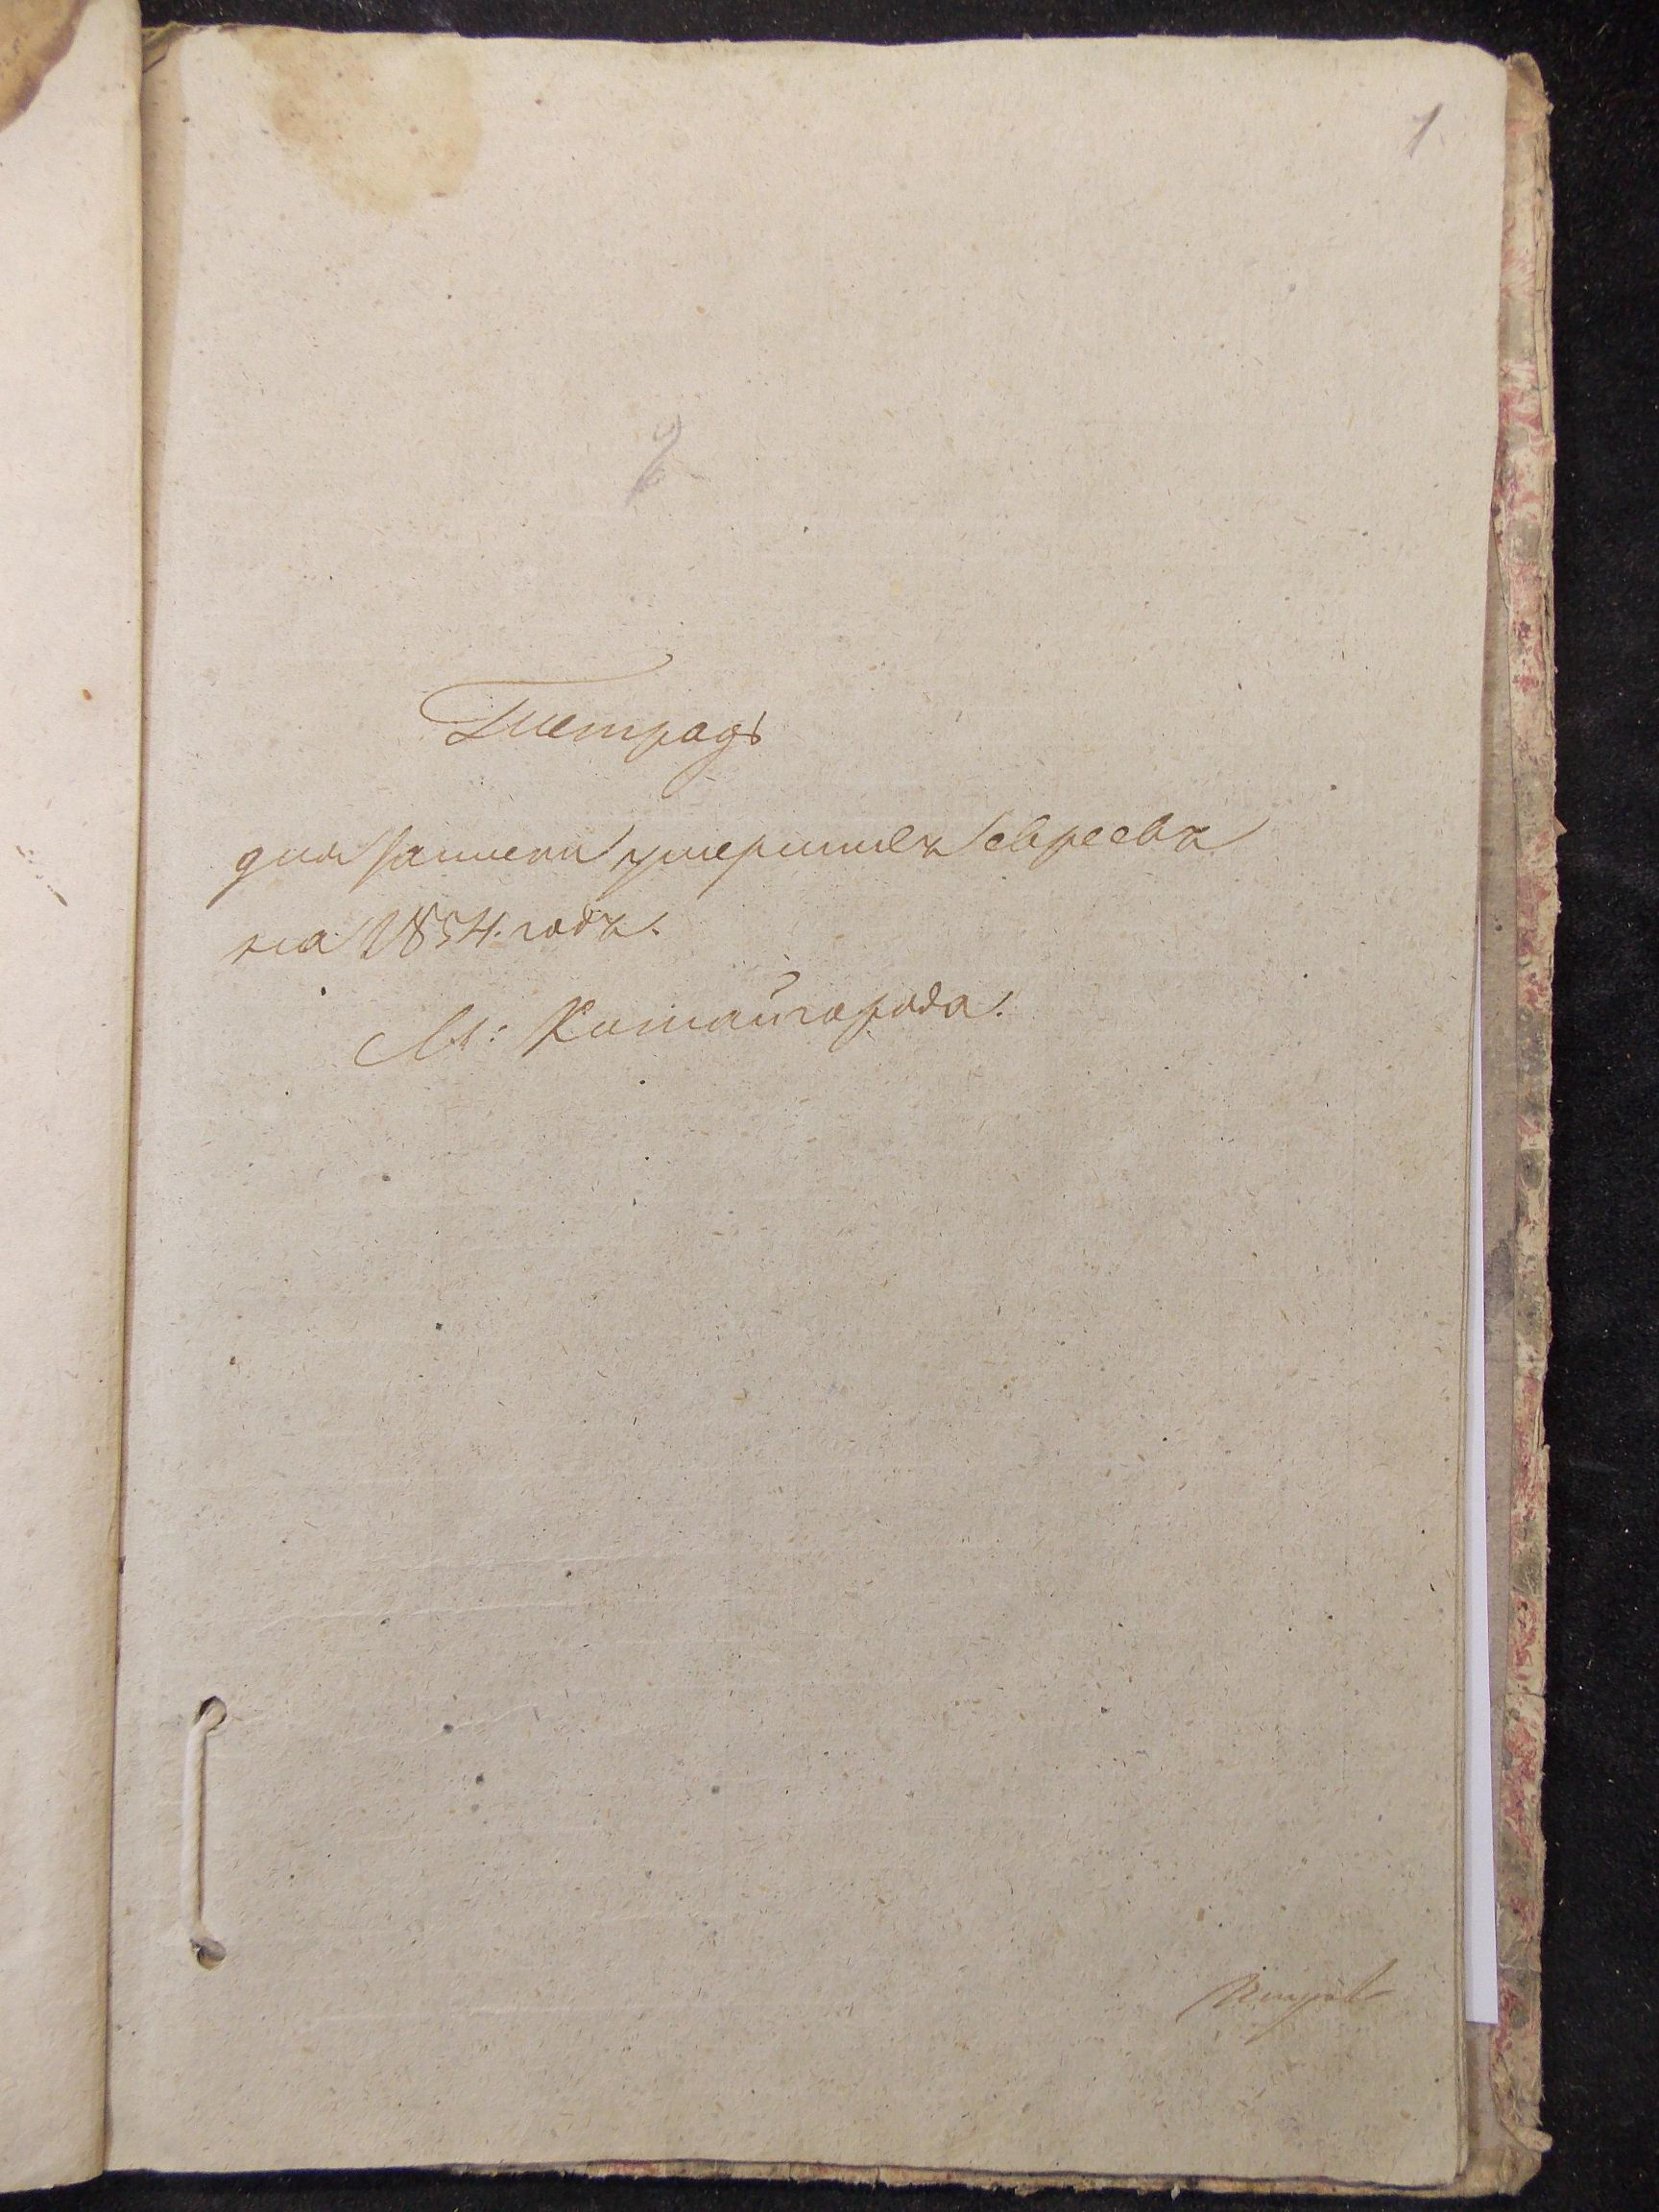 1
2
Тетрадь
для записки умершихъ евреевъ
на 1854. годъ.
М: Китайгорода.